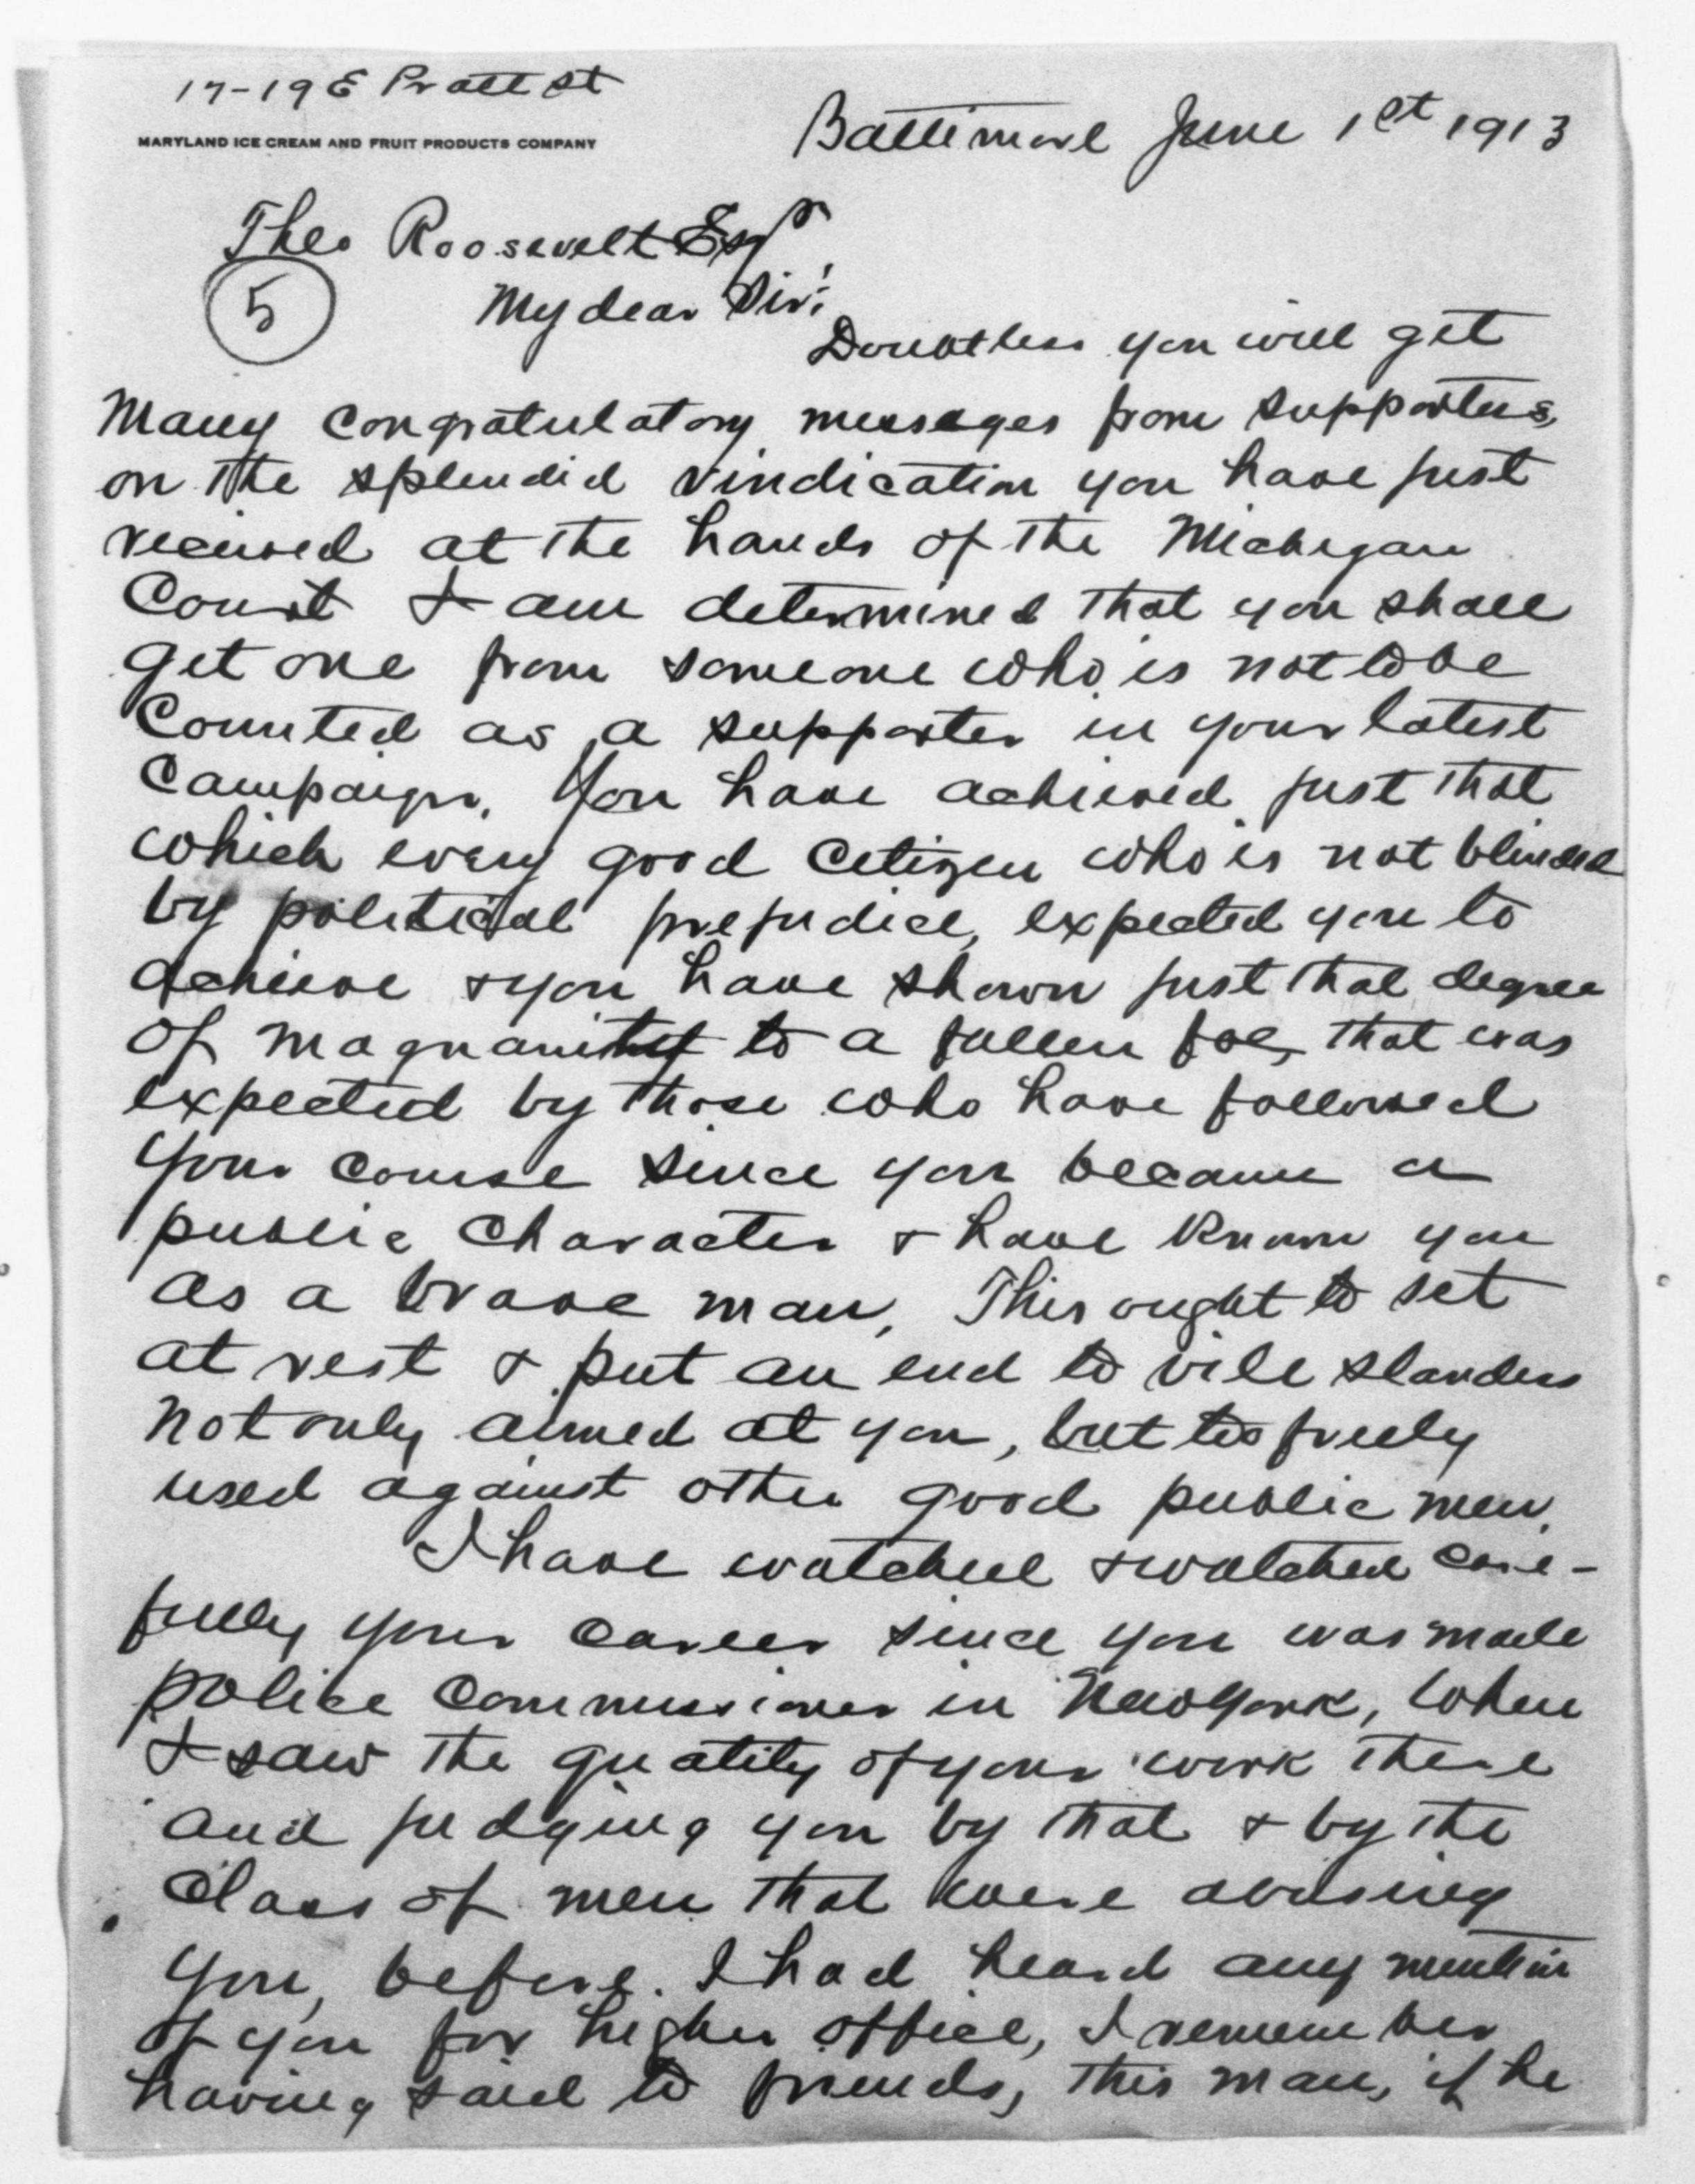 17-19 E Pratt St
MARYLAND ICE CREAM AND FRUIT PRODUCTS COMPANY
Baltimore June 1st 1913
Theo Roosevelt Esqr
5
My dear Sir:
Doubtless you will get
many congratulatory messages from supporters,
on the splendid vindication you have just
received at the hands of the Michigan
Court I am determined that you shall
get one from someone who is not to be
Counted as a supporter in your latest
Campaign. You have achieved just that
which every good Citizen who is not blinded
by political prejudice, expected you to
achieve & you have shown just that degree
of magnanity to a fallen foe, that was
expected by those who have followed
your course since you became a
public Character & have known you
as a brave man, This ought to set
at rest & put an end to vile slanders
not only aimed at you, but too freely
used against other good public men.
I have watched & watched care-
fully your career since you was made
police Commissioner in New York, when
I saw the quality of your work there
and judging you by that & by the
Class of men that were abusing
you, before I had heard any mention
of you for higher office, I remember
having said to friends, this man, if he